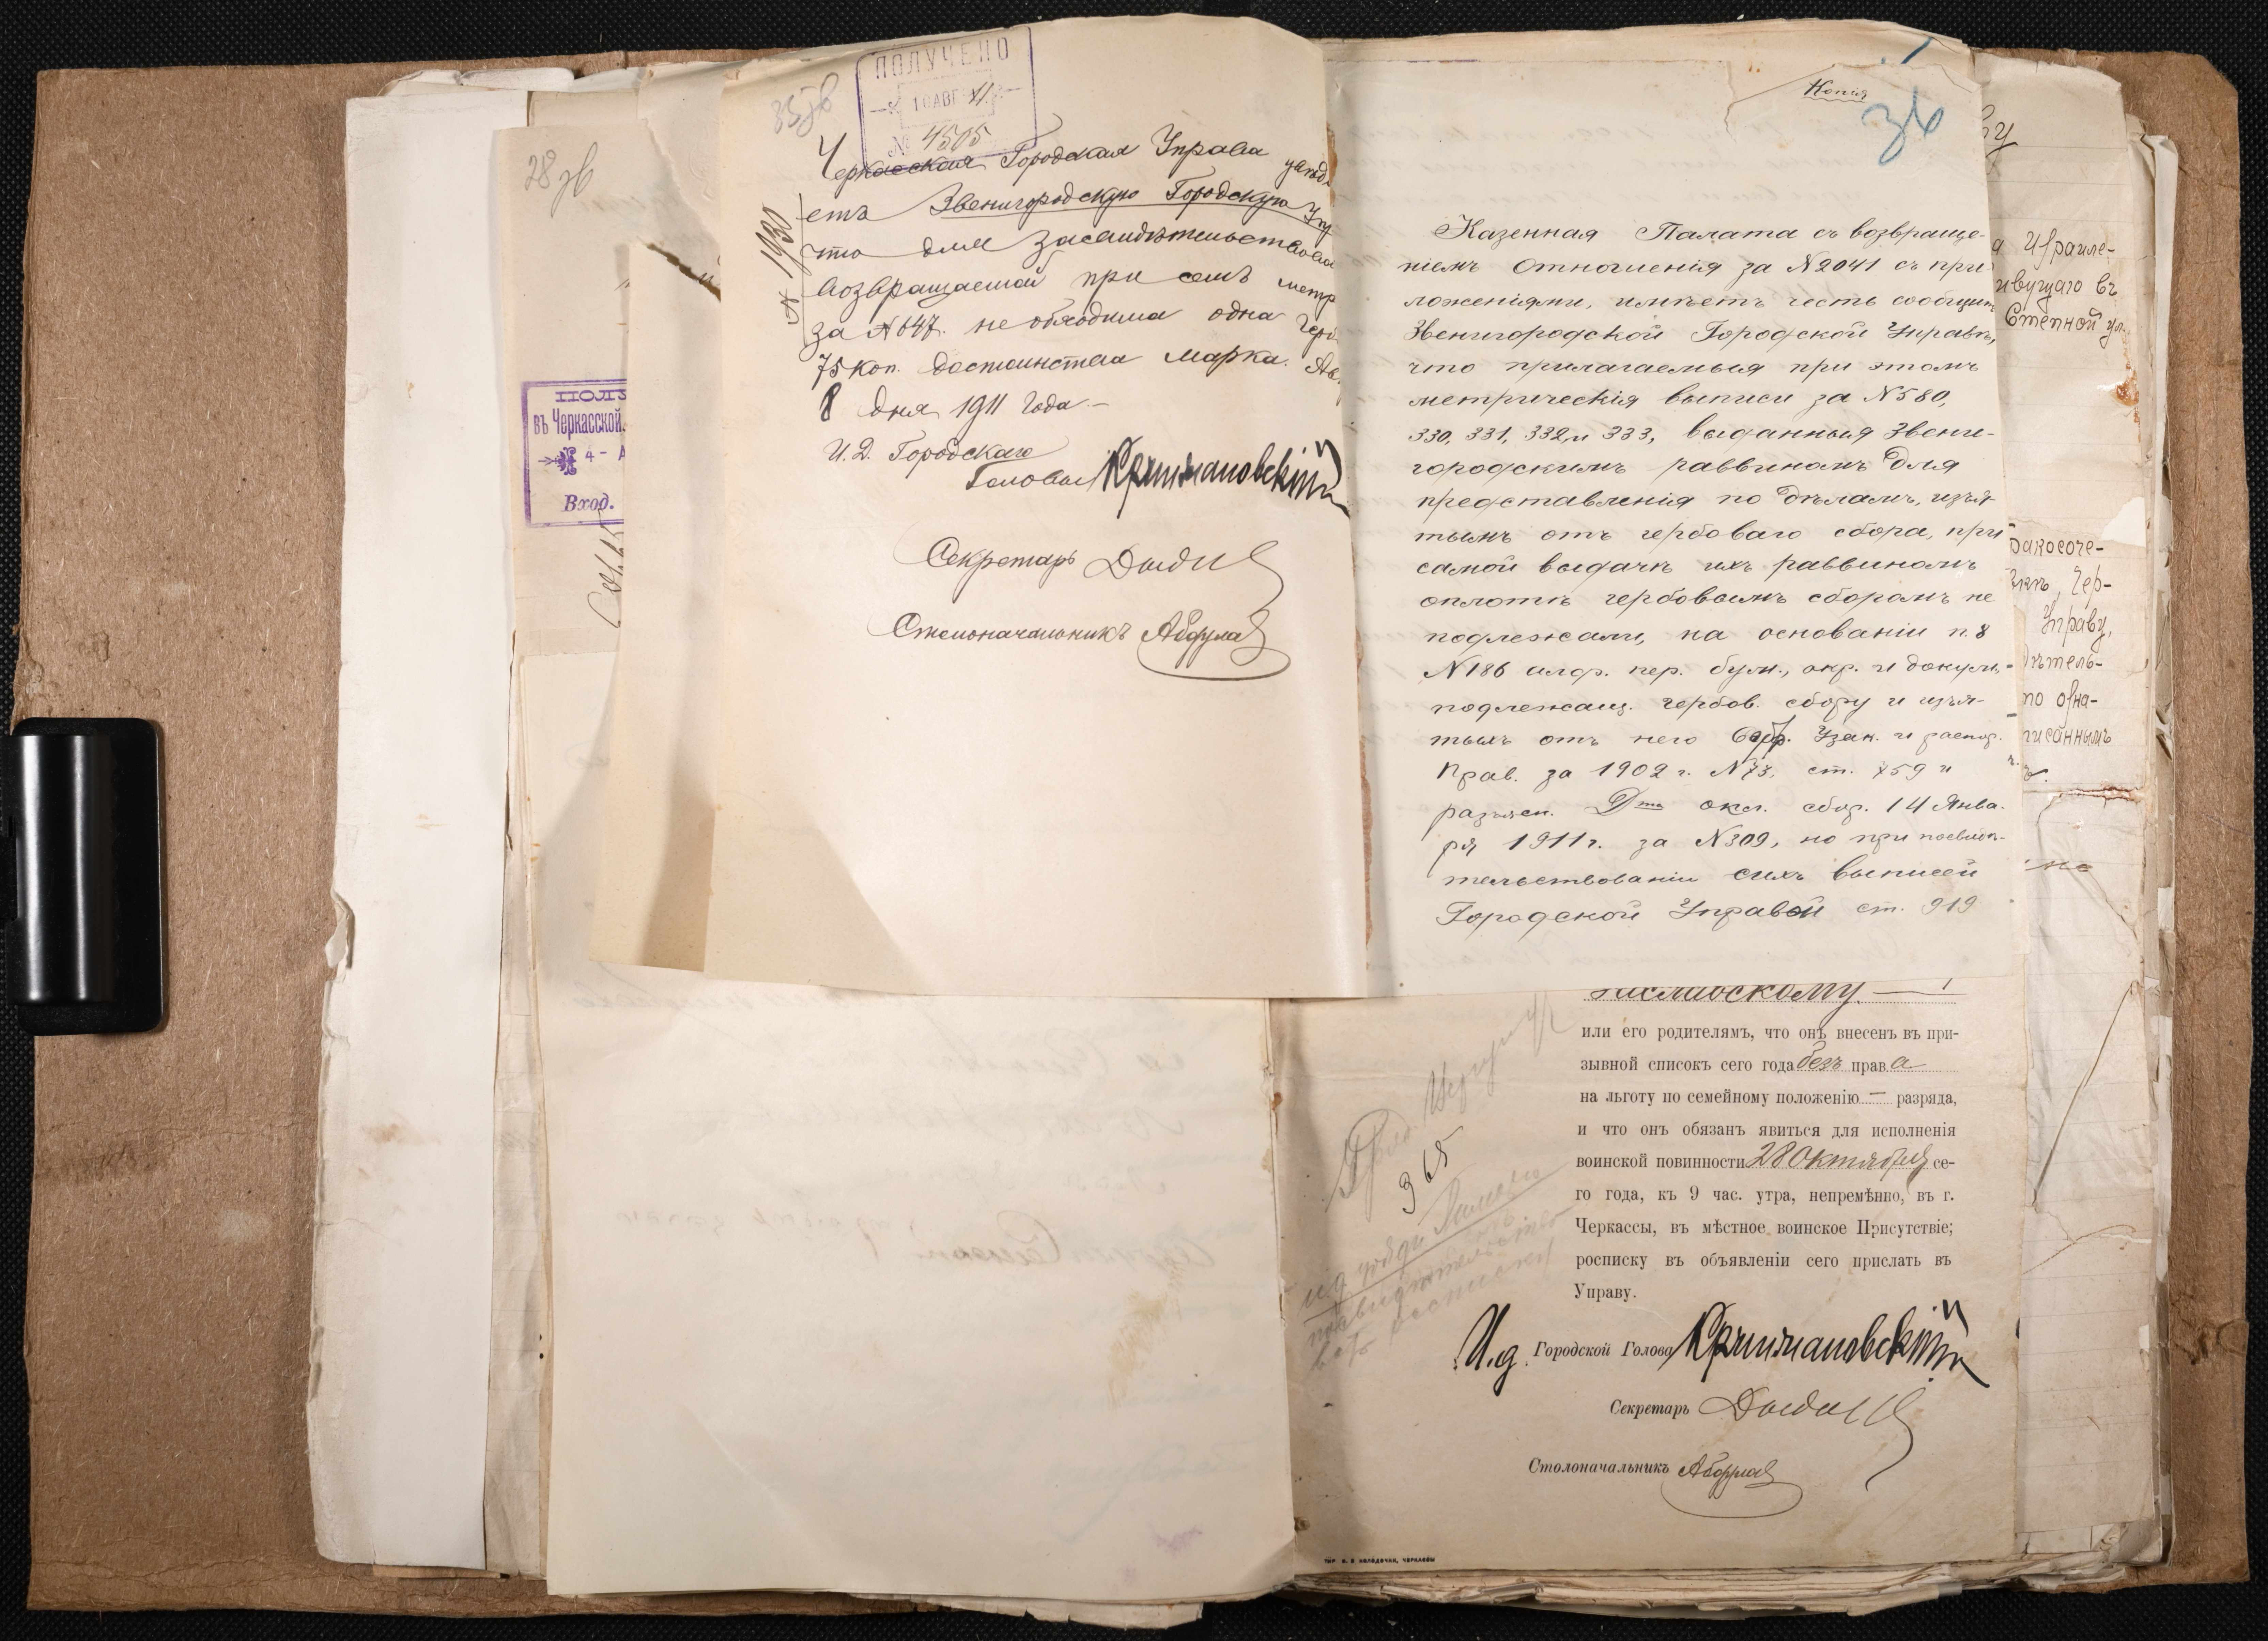 28 зв
въ Черкасской
4 - А
Вход.
35 зв
ПОЛУЧЕНО
10 АВГ 11
№ 4505
Черкасская Городская Управа увѣд
етъ Звенигородскую Городскую Упр
что для засвидѣтельствова
возвращаемой при семъ метр
за № 647. необходима одна герб
75 коп. достоинства марка. Ав
8 дня 1911 года.—
№ 1930
И. Д. Городскаго
Головы
Секретарь
Столоначальникъ
Копія
36
Казенная Палата съ возвраще-
ніемъ отношенія за № 2041 съ при-
ложеніями, имѣетъ честь сообщить
Звенигородской Городской Управѣ,
что прилагаемыя при этомъ
метрическія выписи за № 580,
330, 331, 332 и 333, выданныя Звени-
городскимъ раввиномъ для
представленія по дѣламъ, изъя-
тымъ отъ гербоваго сбора, при
самой выдачѣ ихъ раввиномъ
оплатѣ гербовымъ сборомъ не
подлежали, на основаніи п. 8
№ 186 алф. пер. бум., акт. и докум.,
подлежащ. гербов. сбору и изъя-
тыхъ отъ него Собр. Узак. и распор.
Прав. за 1902 г. № 73, ст. 759 и
разъясн. Дта окл. сбор. 14 Янва-
ря 1911 г. за № 309, но при
тельствованіи сихъ выписей
Городской Управой ст. 919
а Израиле-
ивущаго въ
Степной ул.
Управу,
ѣтель-
по озна-
писаннымъ
Заславскому. —
или его родителямъ, что онъ внесенъ въ при-
зывной списокъ сего года безъ права
на льготу по семейному положенію — разряда,
и что онъ обязанъ явиться для исполненія
воинской повинности 28 Октября се-
го года, къ 9 час. утра, непремѣнно, въ г.
Черкассы, въ мѣстное воинское Присутствіе;
росписку въ объявленіи сего прислать въ
Управу.
965
И.д. Городской Голова
Секретарь
Столоначальникъ